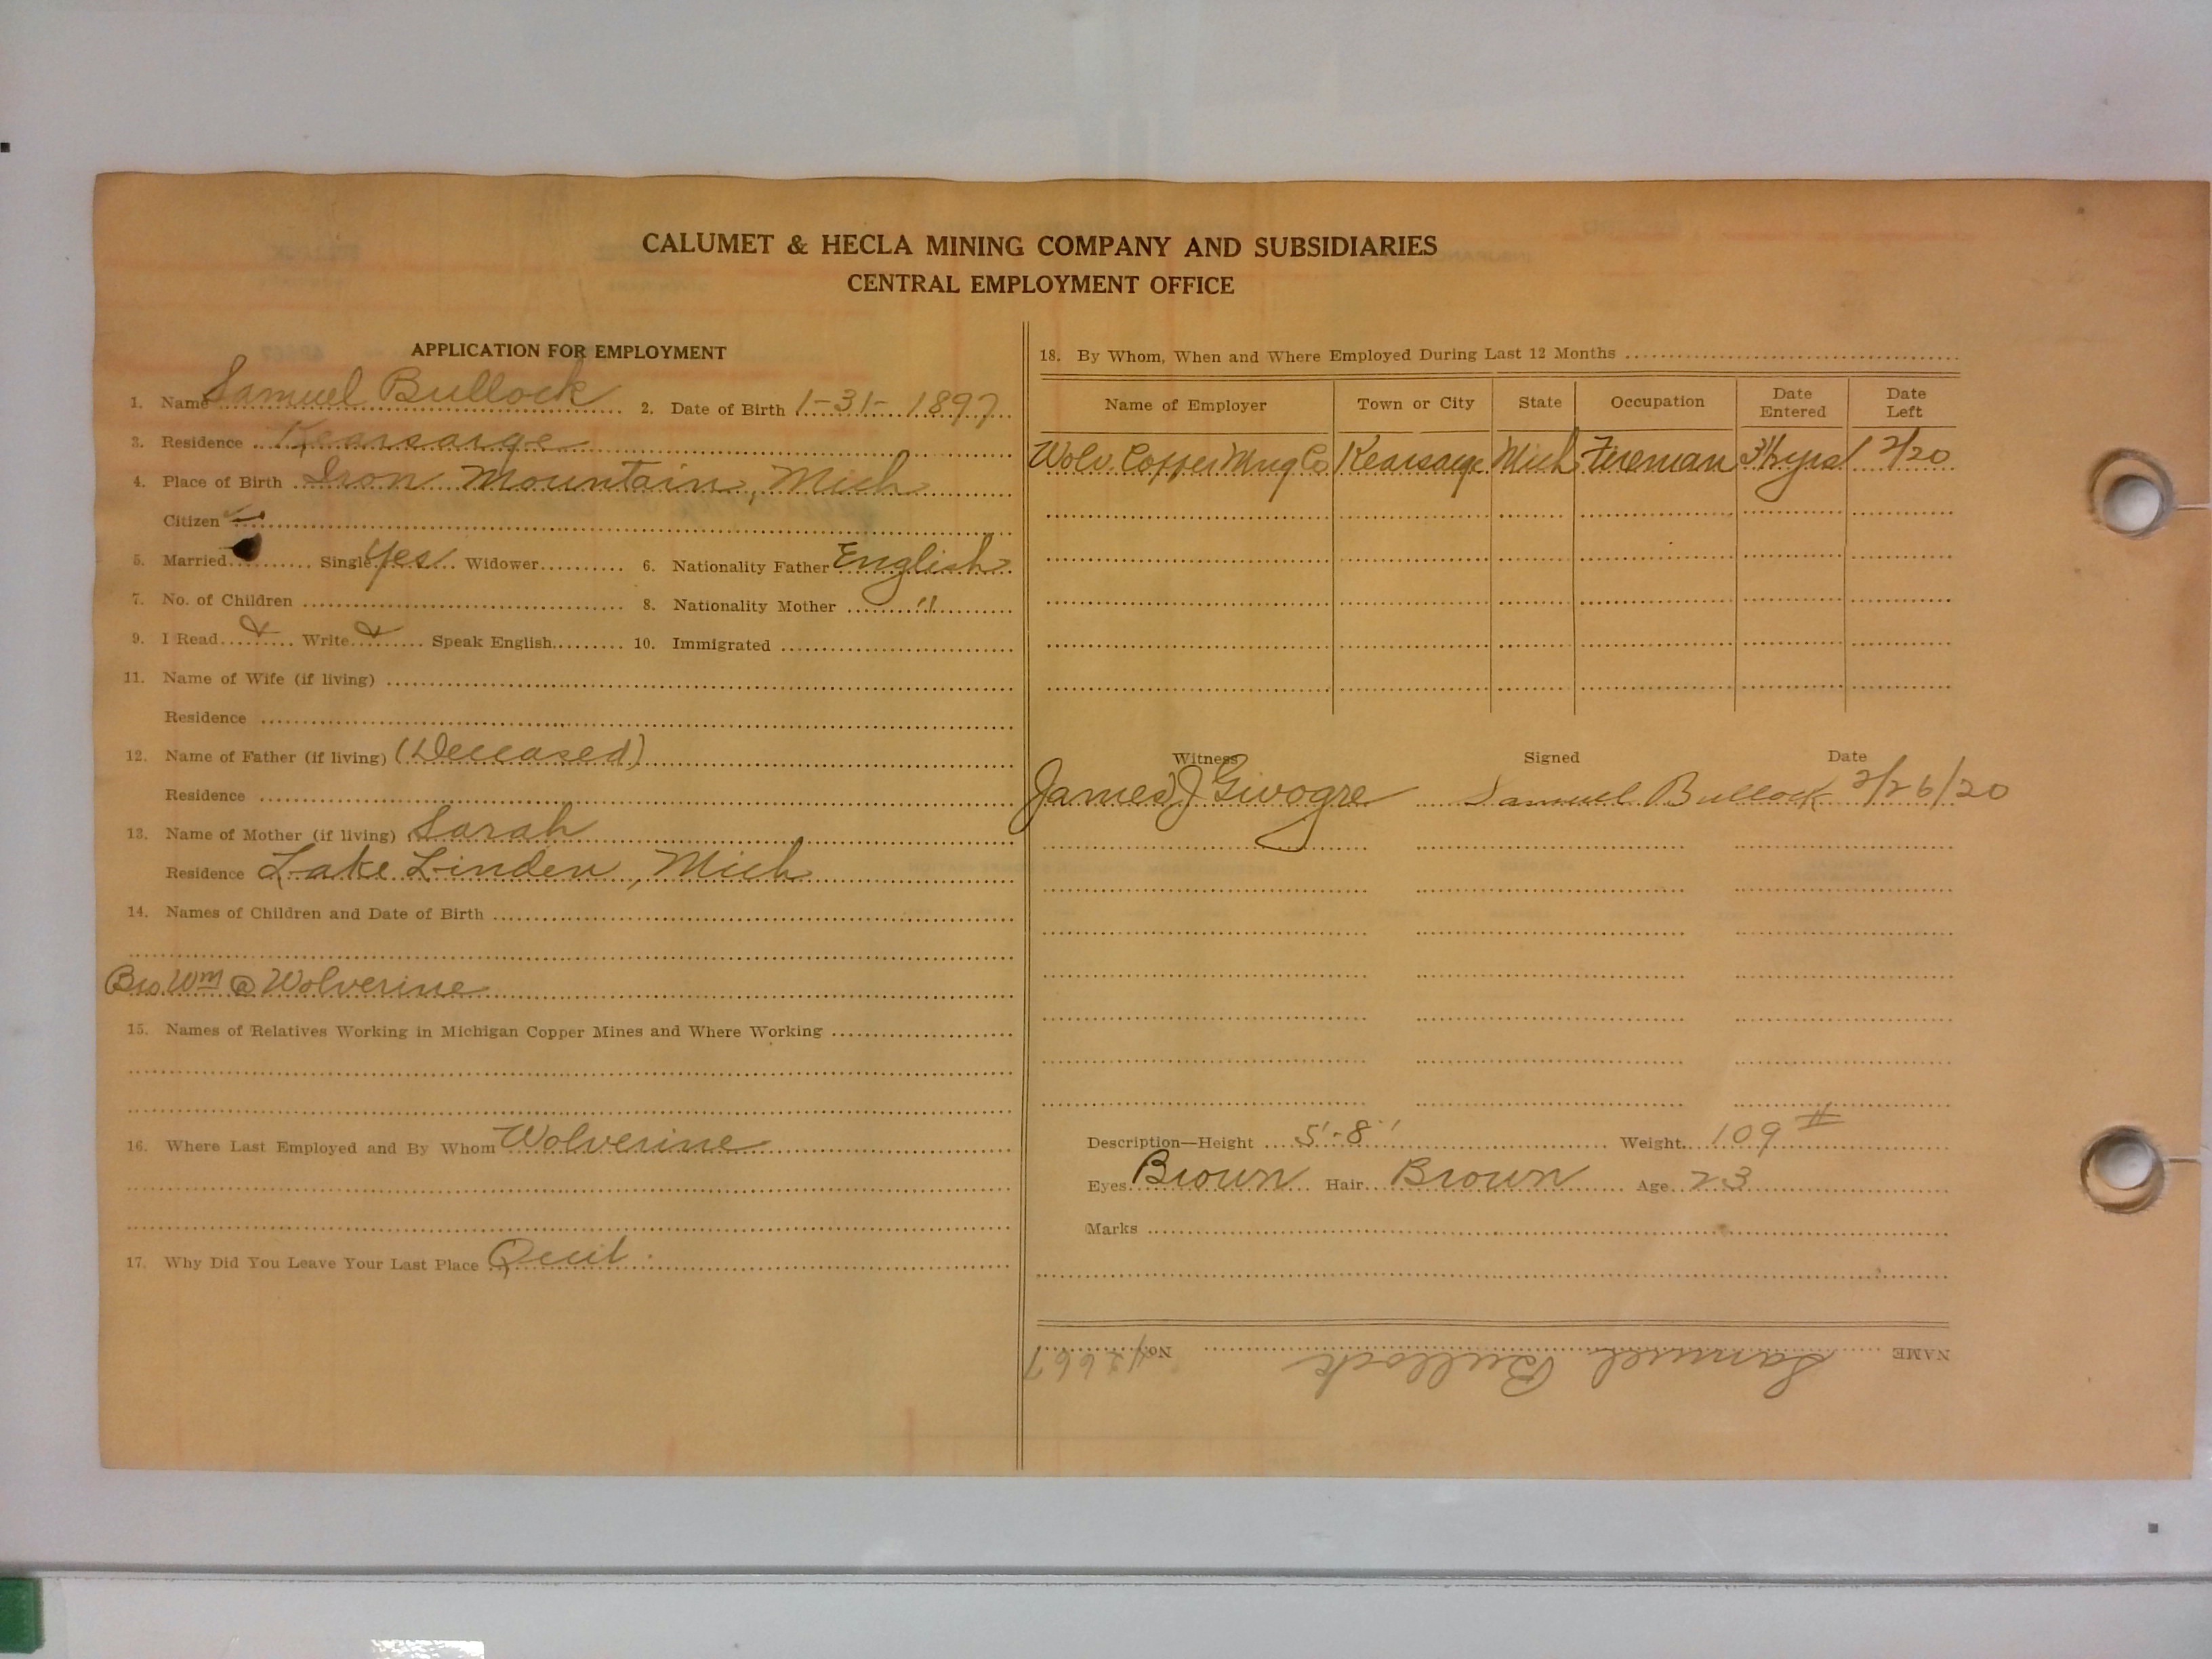 CALUMET & HECLA MINING COMPANY AND SUBSIDIARIES
CENTRAL EMPLOYMENT OFFICE
APPLICATION FOR EMPLOYMENT
1. Name Samuel Bullock 2. Date of Birth 1-31-1897
3. Residence Kearsarge
4. Place of Birth Iron Mountain, Mich
Citizen
5. Married Single Yes Widower 6. Nationality Father English
7. No. of Children 8. Nationality Mother "
9. I Read Write Speak English 10. Immigrated
11. Name of Wife (if living)
Residence
12. Name of Father (if living) (Deceased)
Residence
13. Name of Mother (if living) Sarah
Residence Lake Linden, Mich
14. Names of Children and Date of Birth
Bro. Wm @ Wolverine
15. Names of Relatives Working in Michigan Copper Mines and Where Working
16. Where Last Employed and By Whom Wolverine
17. Why Did You Leave Your Last Place Quit.
18. By Whom, When and Where Employed During Last 12 Months
Name of Employer Town or City State Occupation Date Entered Date Left
Wolv. Copper Mng Co Kearsarge Mich Fireman 3½ yrs 2/20
Witness Signed Date
James J Samuel Bullock 2/26/20
Description—Height 5'-8" Weight 109 #
Eyes Brown Hair Brown Age 23
Marks
NAME Samuel Bullock No.